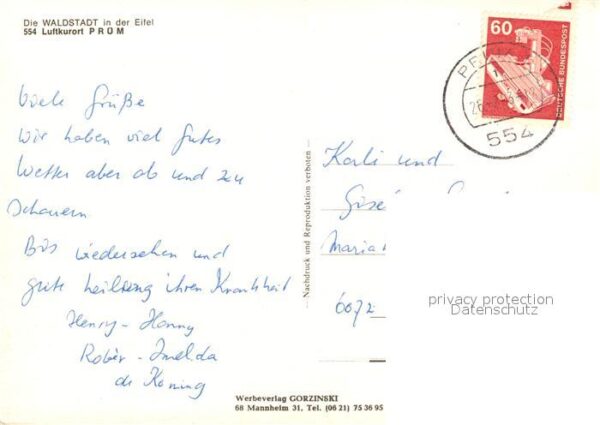 Die WALDSTADT in der Eifel
554 Luftkurort PRÜM
60
DEUTSCHE BUNDESPOST
554
Viele Grüße
Wir haben viel Gutes
Wetter aber ab und zu
Schauern
Bis wiedersehen und
gute heilung ihren Krankheit
Henny - Hanny
Robèr - Imelda
de Koning
Nachdruck und Reproduktion verboten
Karli und
Gisé
Maria
6072
privacy protection
Datenschutz
Werbeverlag GORZINSKI
68 Mannheim 31, Tel. (06 21) 75 36 95